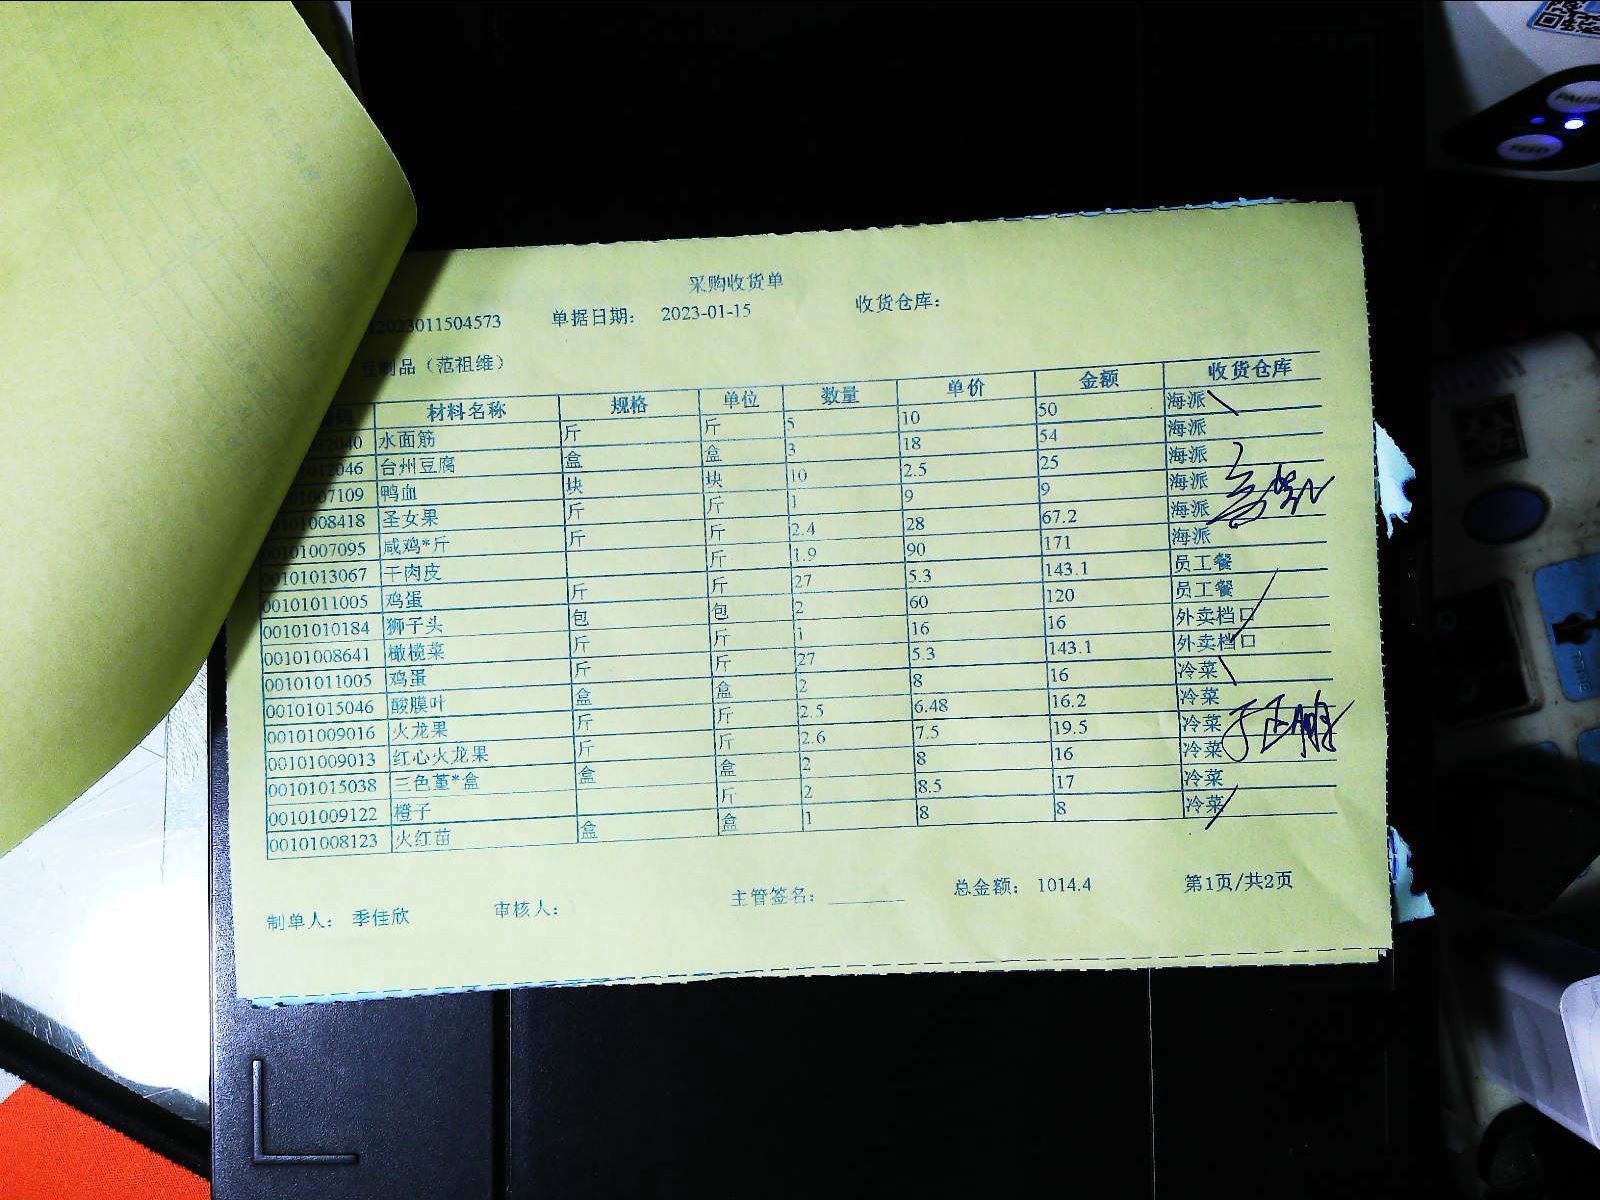 采购收货单
2023011504573 单据日期： 2023-01-15 收货仓库：
豆制品（范祖维）
材料名称 规格 单位 数量 单价 金额 收货仓库
2040 水面筋 斤 斤 5 10 50 海派
12046 台州豆腐 盒 盒 3 18 54 海派
01007109 鸭血 块 块 10 2.5 25 海派
101008418 圣女果 斤 斤 1 9 9 海派
00101007095 咸鸡*斤 斤 斤 2.4 28 67.2 海派
00101013067 干肉皮 斤 1.9 90 171 海派
00101011005 鸡蛋 斤 斤 27 5.3 143.1 员工餐
00101010184 狮子头 包 包 2 60 120 员工餐
00101008641 橄榄菜 斤 斤 1 16 16 外卖档口
00101011005 鸡蛋 斤 斤 27 5.3 143.1 外卖档口
00101015046 酸膜叶 盒 盒 2 8 16 冷菜
00101009016 火龙果 斤 斤 2.5 6.48 16.2 冷菜
00101009013 红心火龙果 斤 斤 2.6 7.5 19.5 冷菜
00101015038 三色堇*盒 盒 盒 2 8 16 冷菜
00101009122 橙子 斤 2 8.5 17 冷菜
00101008123 火红苗 盒 盒 1 8 8 冷菜
制单人： 季佳欣 审核人： 主管签名： 总金额： 1014.4 第1页/共2页